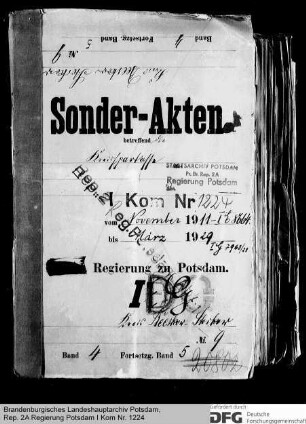 Band 4 Fortsetzg. Band 5
№ 9
Sonder-Akten
betreffend die
Kreissparkasse
STAATSARCHIV POTSDAM
Pr. Br. Rep. 2A
Regierung Potsdam
I Kom Nr 1224
vom November 1911
bis März 1929
Regierung zu Potsdam.
№ 9
Band 4 Fortsetzg. Band 5
Brandenburgisches Landeshauptarchiv Potsdam,
Rep. 2A Regierung Potsdam I Kom Nr. 1224
Gefördert durch:
DFG Deutsche
Forschungsgemeinschaft